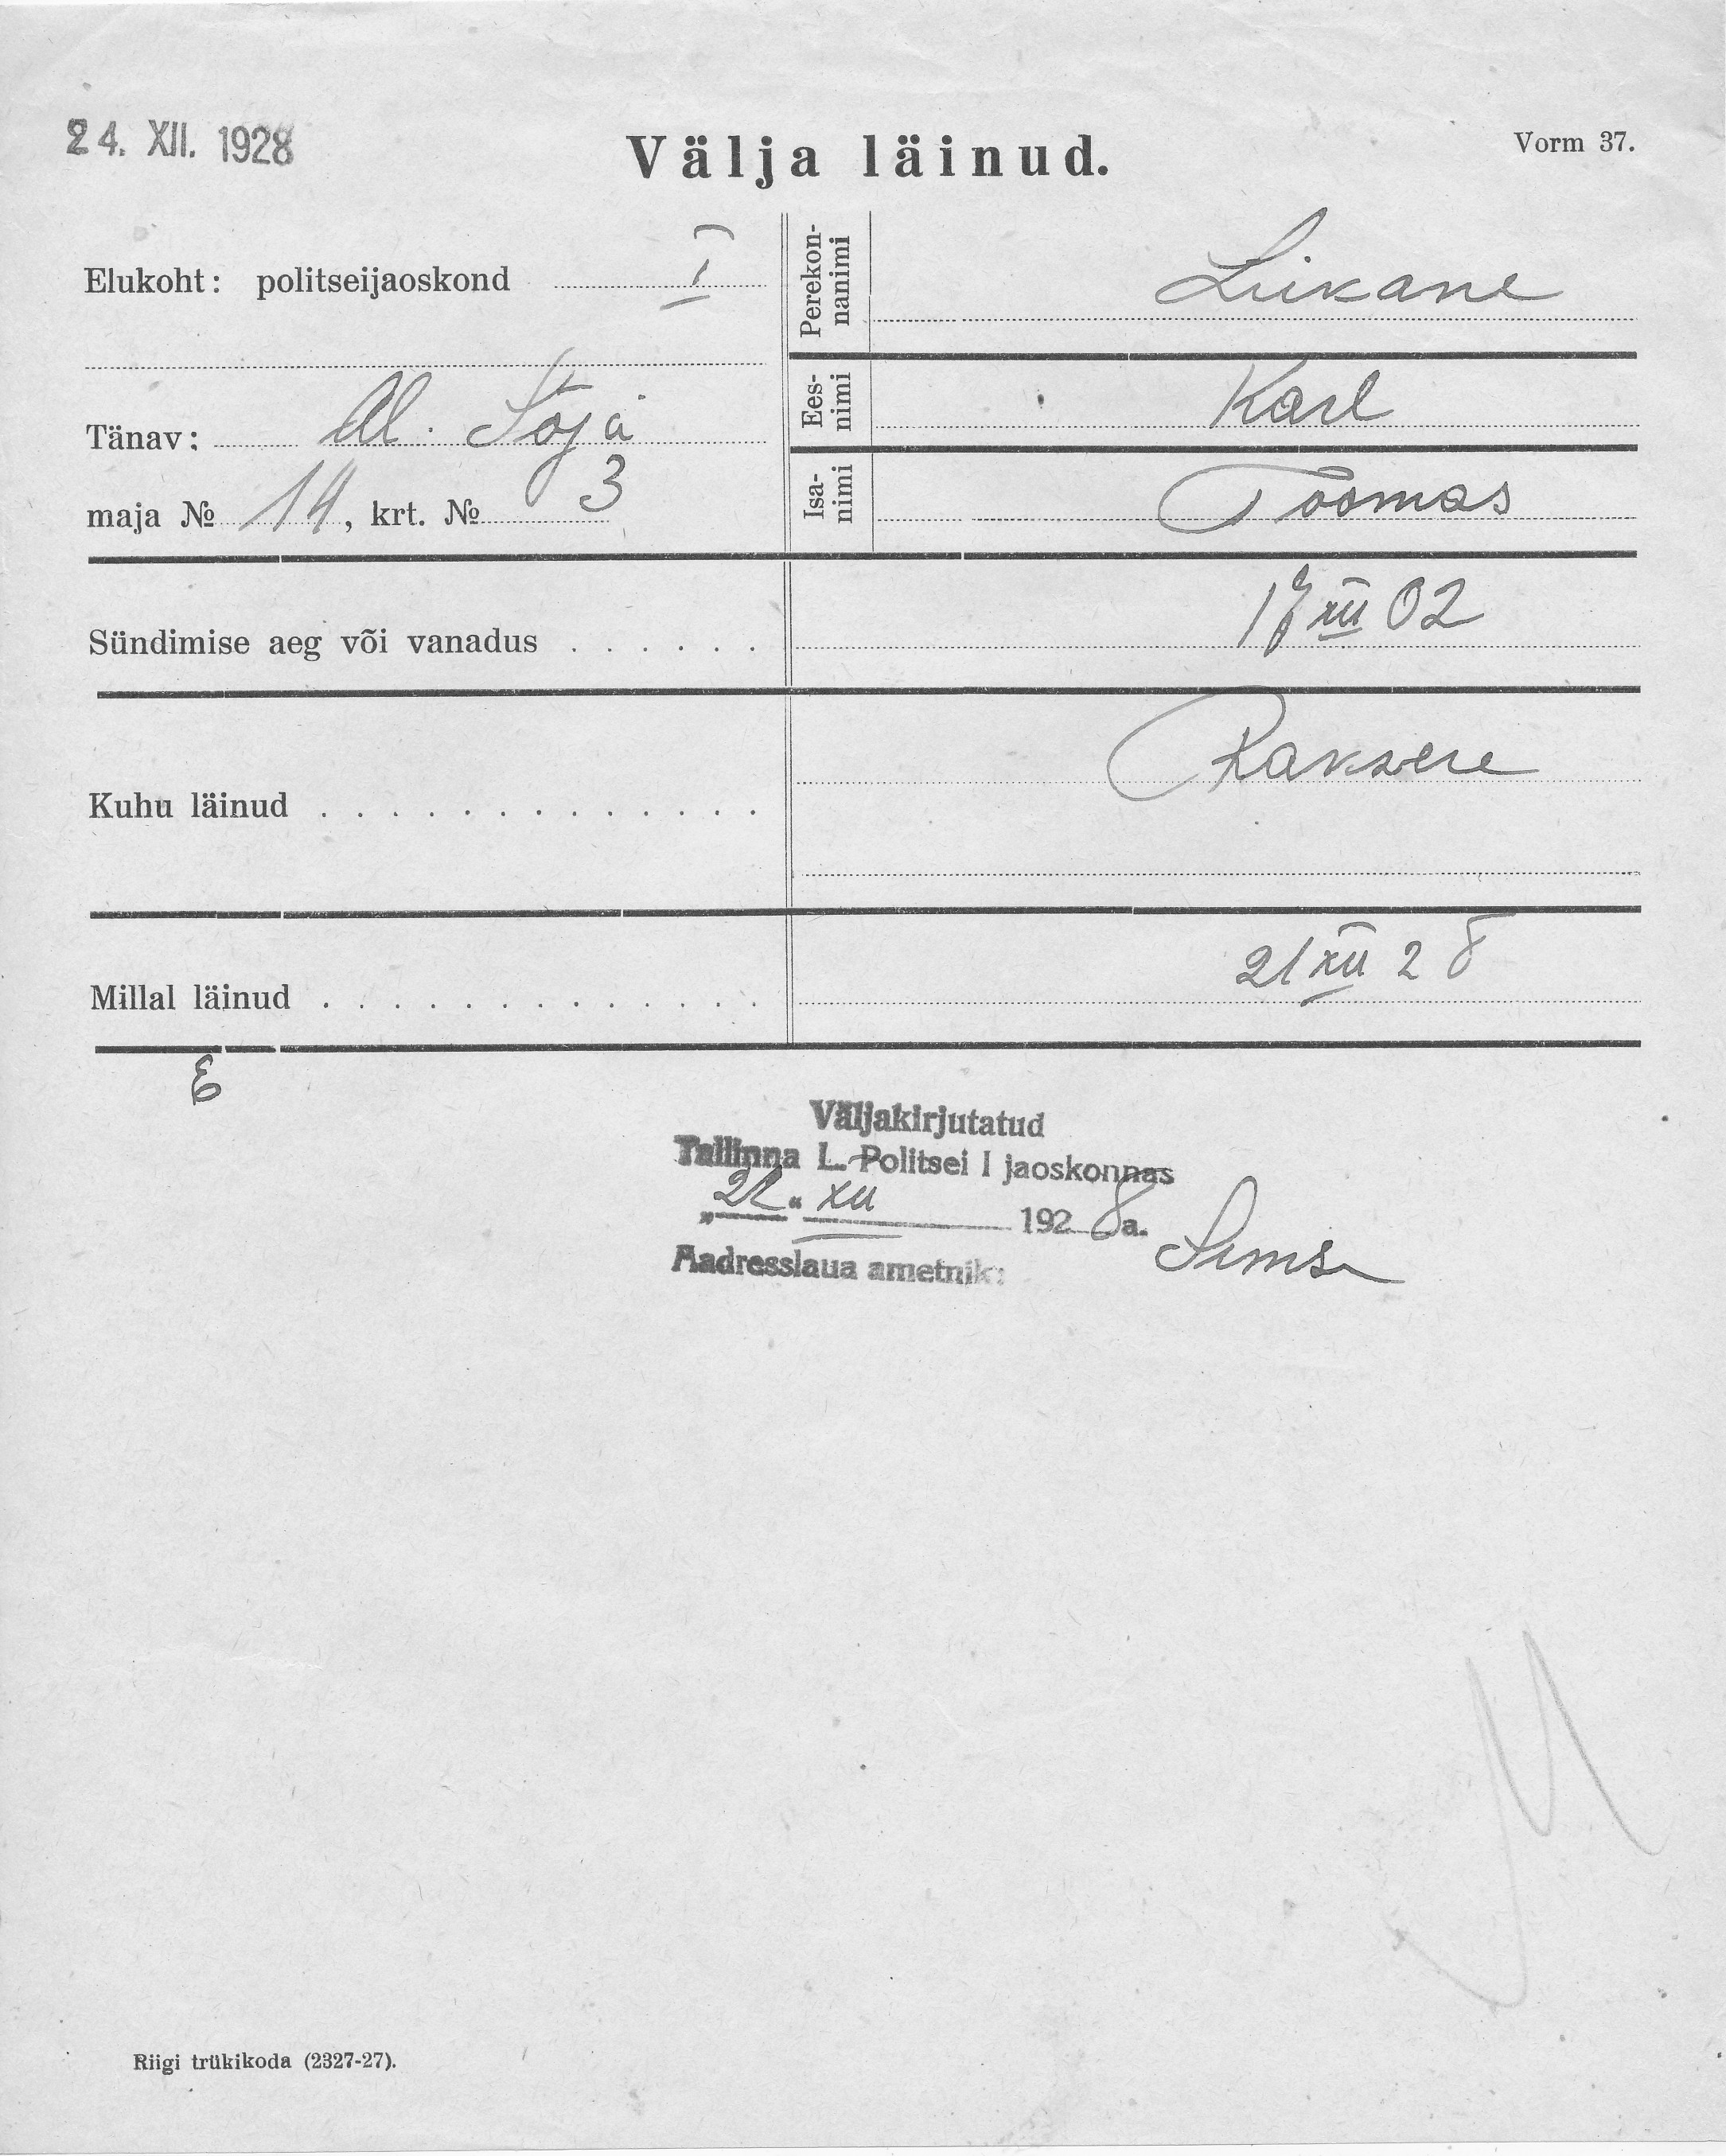 24. XII. 1928
Välja läinud.
Vorm 37.
Elukoht: politseijaoskond I
Perekon-
nanimi
Liikane
Tänav:
Ees-
nimi
Karl
maja № 14, krt. № 3
Isa-
nimi
Toomas
Sündimise aeg või vanadus . . . . . . 17 XII 02
Kuhu läinud . . . . . . . . . . . . . Rakvere
Millal läinud . . . . . . . . . . . . . 21 XII 28
Väljakirjutatud
Tallinna L. Politsei I jaoskonnas
„21“ XII 1928a.
Aadresslaua ametnik:
Riigi trükikoda (2327-27).